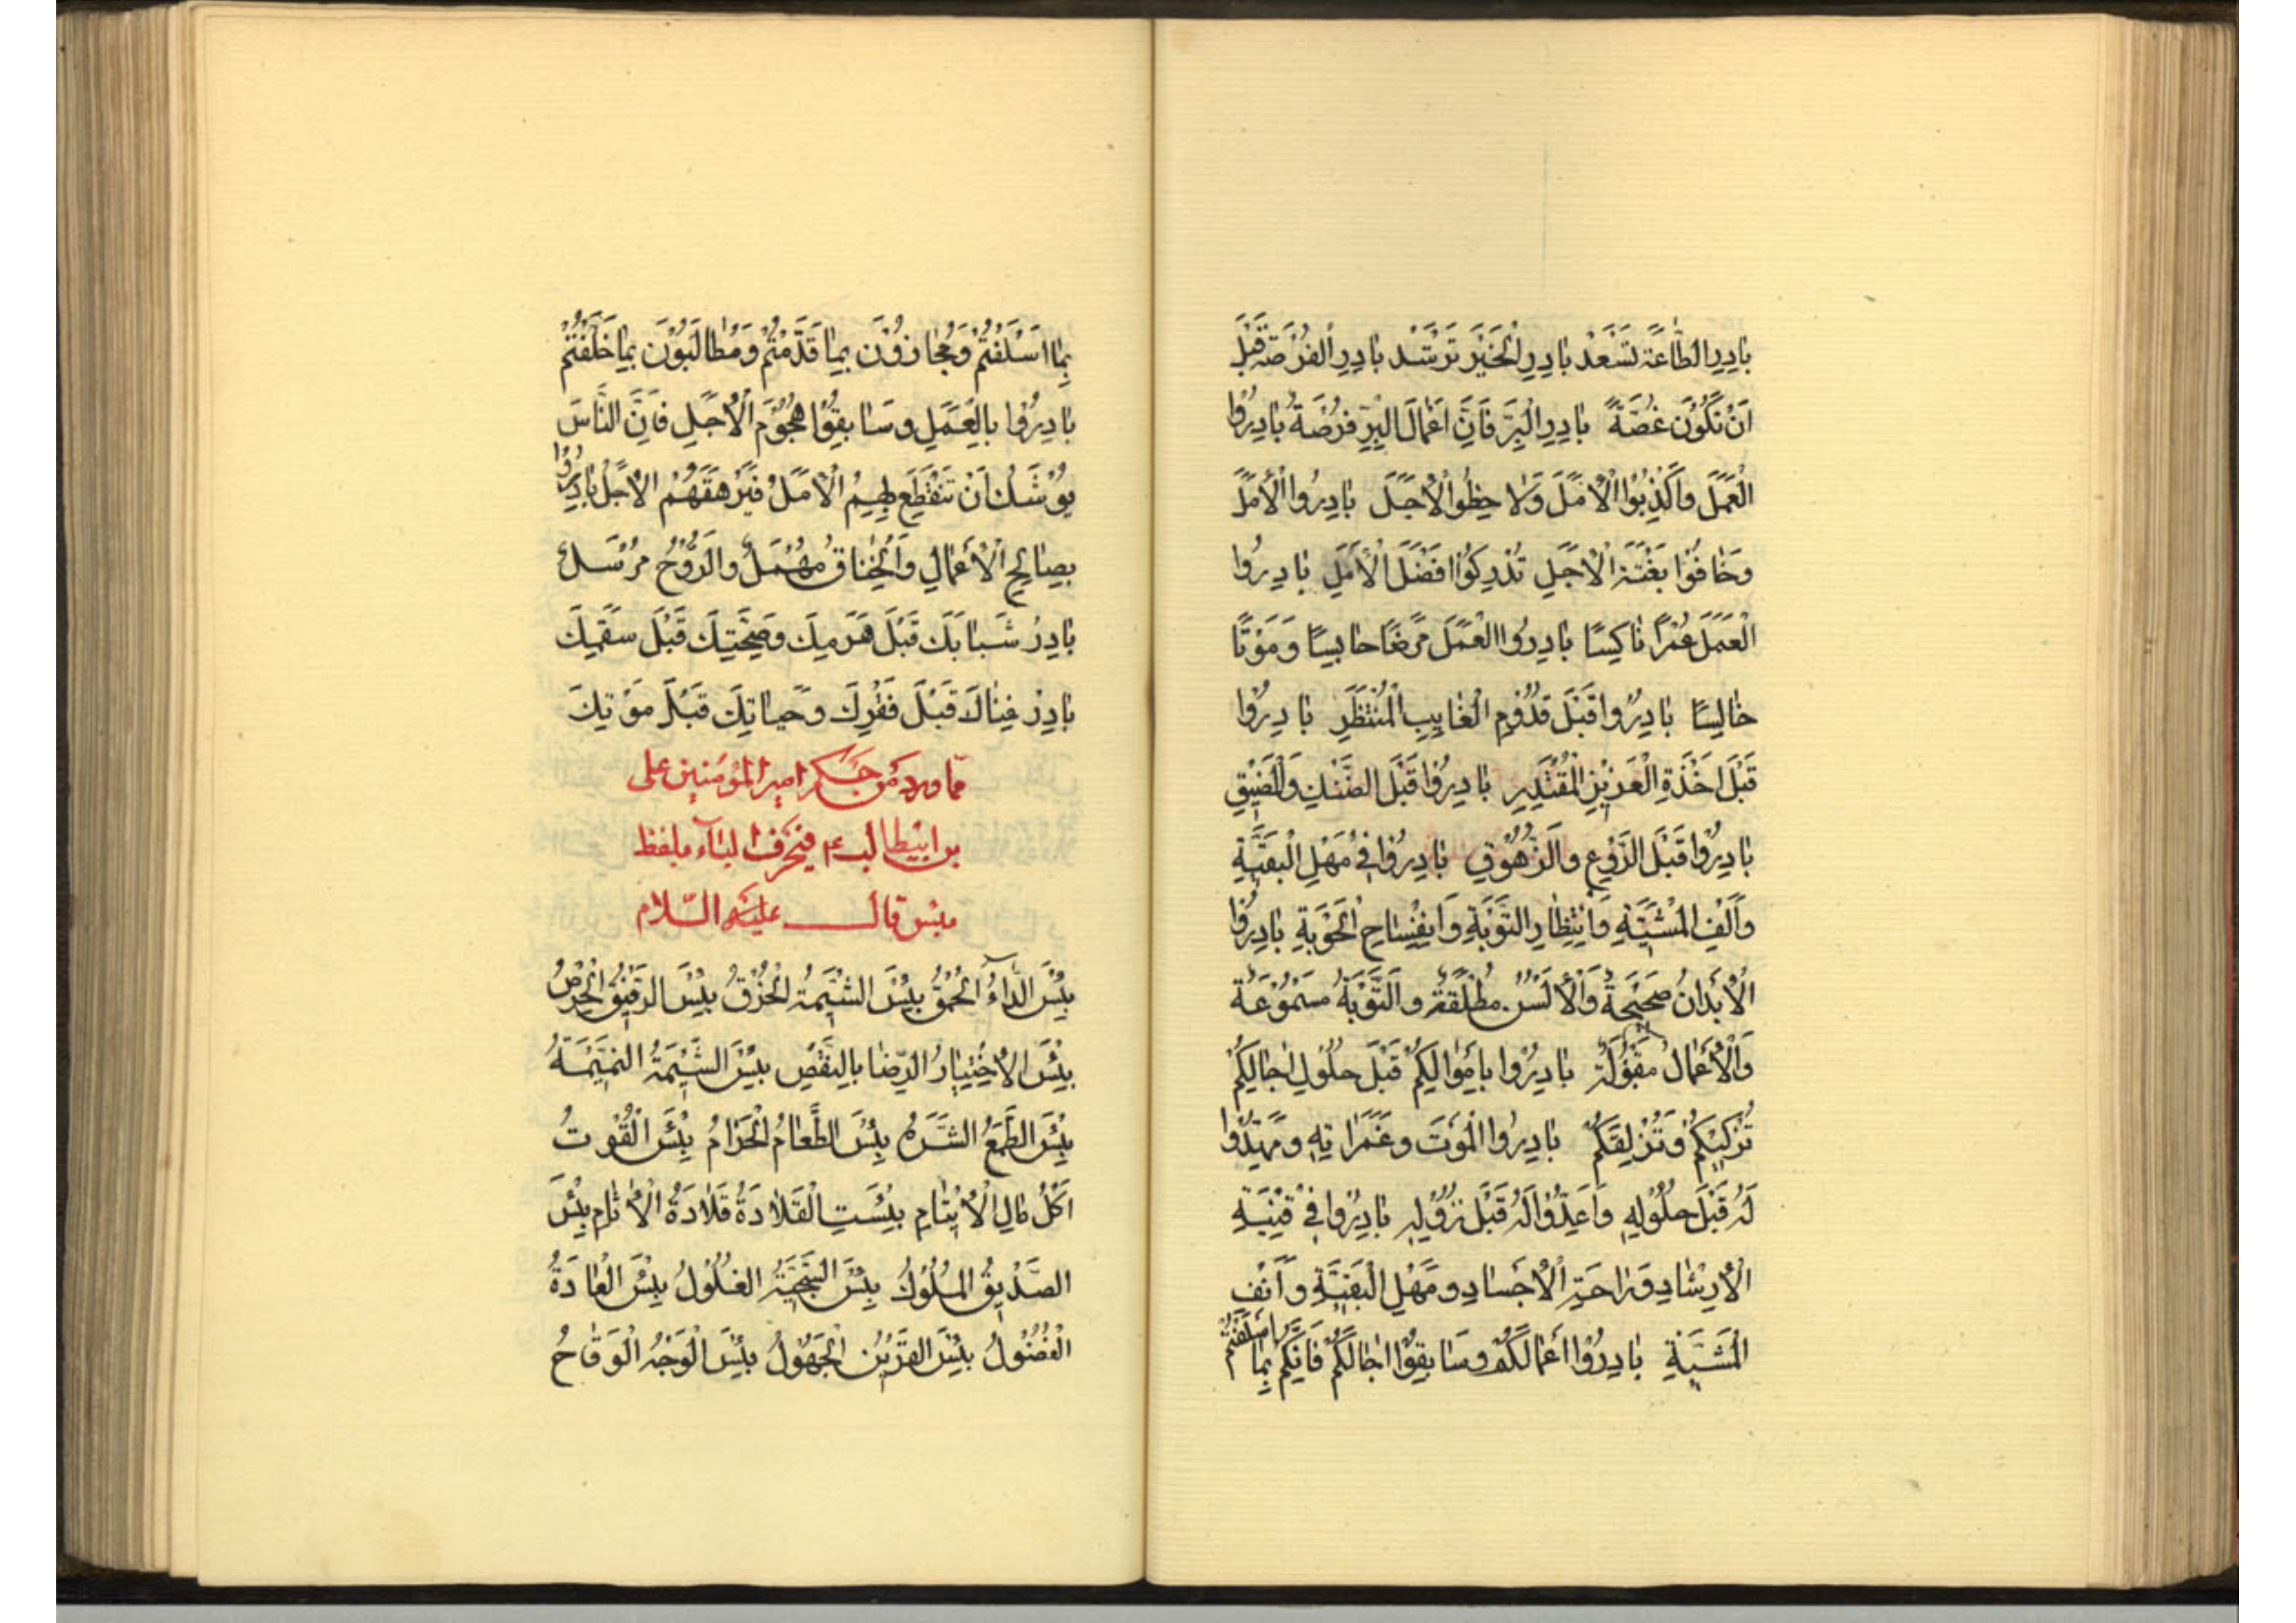 بٰادِرِ الطّٰاعَةَ تَسْعَدْ بٰادِرِ الْخَيْرَ تَرْشَدْ بٰادِرِ الْفُرْصَةَ قَبْلَ
اَنْ تَكُوْنَ غُصَّةً بٰادِرِ الْبِرَّ فَاِنَّ اَعْمٰالَ الْبِرِّ فُرْصَةٌ بٰادِرُوا
الْعَمَلَ وَاَكْذِبُوْا الْاَمَلَ وَلاٰحِظُوا الْاَجَلَ بٰادِرُوا الْاَمَلَ
وَخٰافُوْا بَغْتَةَ الْاَجَلِ تُدْرِكُوْا اَفْضَلَ الْاَمَلِ بٰادِرُوا
الْعَمَلَ عُمْرًا نٰاكِسًا بٰادِرُوا الْعَمَلَ مَرَضًا حٰابِسًا وَمَوْتًا
خٰالِسًا بٰادِرُوا قَبْلَ قُدُوْمِ الْغٰايِبِ الْمُنْتَظَرِ بٰادِرُوا
قَبْلَ اَخْذَةِ الْعَزِيْزِ الْمُقْتَدِرِ بٰادِرُوا قَبْلَ الضَّنْكِ وَالْمَضِيْقِ
بٰادِرُوا قَبْلَ الرَّوْعِ وَالزُّهُوْقِ بٰادِرُوا فِيْ مَهَلِ الْبَقِيَّةِ
وَاَنْفِ الْمَشِيَّةِ وَاِنْتِظٰارِ التَّوْبَةِ وَاِنْفِسٰاحِ الْحَوْبَةِ بٰادِرُوا
الْاَبْدٰانُ صَحِيْحَةٌ وَالْاَلْسُنُ مُطْلَقَةٌ وَالتَّوْبَةُ مَسْمُوْعَةٌ
وَالْاَعْمٰالُ مَقْبُوْلَةٌ بٰادِرُوا بِاَمْوٰالِكُمْ قَبْلَ حُلُوْلِ اٰجٰالِكُمْ
تُزَكِّيْكُمْ وَتُزْلِفَكُمْ بٰادِرُوا الْمَوْتَ وَغَمَرٰاتِهِ وَمَهِّدُوْا
لَهُ قَبْلَ حُلُوْلِهِ وَاَعِدُّوْا لَهُ قَبْلَ نُزُوْلِهِ بٰادِرُوا فِيْ فَيْنَةِ
الْاِرْشٰادِ وَرٰاحَةِ الْاَجْسٰادِ وَمَهَلِ الْبَقِيَّةِ وَاَنْفِ
الْمَشِيَّةِ بٰادِرُوْا اَعْمٰالَكُمْ وَسٰابِقُوْا اٰجٰالَكُمْ فَاِنَّكُمْ بِمٰا
بِمٰا اَسْلَفْتُمْ وَمُجٰازُوْنَ بِمٰا قَدَّمْتُمْ وَمُطٰالَبُوْنَ بِمٰا خَلَّفْتُمْ
بٰادِرُوا بِالْعَمَلِ وَسٰابِقُوْا هُجُوْمَ الْاَجَلِ فَاِنَّ النّٰاسَ
يُوْشَكُ اَنْ تَنْقَطِعَ بِهِمُ الْاَمَلُ فَيَرْهَقَهُمُ الْاَجَلُ بٰادِرُوا
بِصٰالِحِ الْاَعْمٰالِ وَالْخِنٰاقُ مُهْمَلٌ وَالرُّوْحُ مُرْسَلٌ
بٰادِرْ شَبٰابَكَ قَبْلَ هَرَمِكَ وَصِحَّتِكَ قَبْلَ سَقَمِكَ
بٰادِرْ غِنٰاكَ قَبْلَ فَقْرِكَ وَحَيٰاتِكَ قَبْلَ مَوْتِكَ
مما ورد من حكم امير المؤمنين على
بن ابيطالب ع فى حرف الباء بلفظ
بئس قال عليه السّلام
بِئْسَ الدّٰاءُ الْحُمْقُ بِئْسَ الشِّيْمَةُ الْخُرْقُ بِئْسَ الرَّفِيْقُ الْحِرْصُ
بِئْسَ الْاِخْتِيٰارُ الرِّضٰا بِالنَّقْصِ بِئْسَ الشِّيْمَةُ النَّمِيْمَةُ
بِئْسَ الطَّمَعُ الشَّرَهُ بِئْسَ الطَّعٰامُ الْحَرٰامُ بِئْسَ الْقُوْتُ
اَكْلُ مٰالِ الْاَيْتٰامِ بِئْسَتِ الْقَلاٰدَةُ قَلاٰدَةُ الْاٰثٰامِ بِئْسَ
الصَّدِيْقُ الْمُلُوْكُ بِئْسَ السَّجِيَّةُ الْغُلُوْلُ بِئْسَ الْعٰادَةُ
الْفُضُوْلُ بِئْسَ الْقَرِيْنُ الْجَهُوْلُ بِئْسَ الْوَجْهُ الْوَقٰاحُ